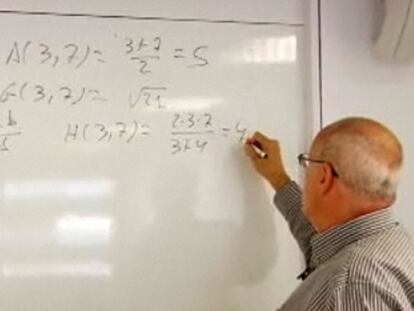 A(3,7) = 3+7/2 = 5
G(3,7) = √21
H(3,7) = 2·3·7/3+4 = 4